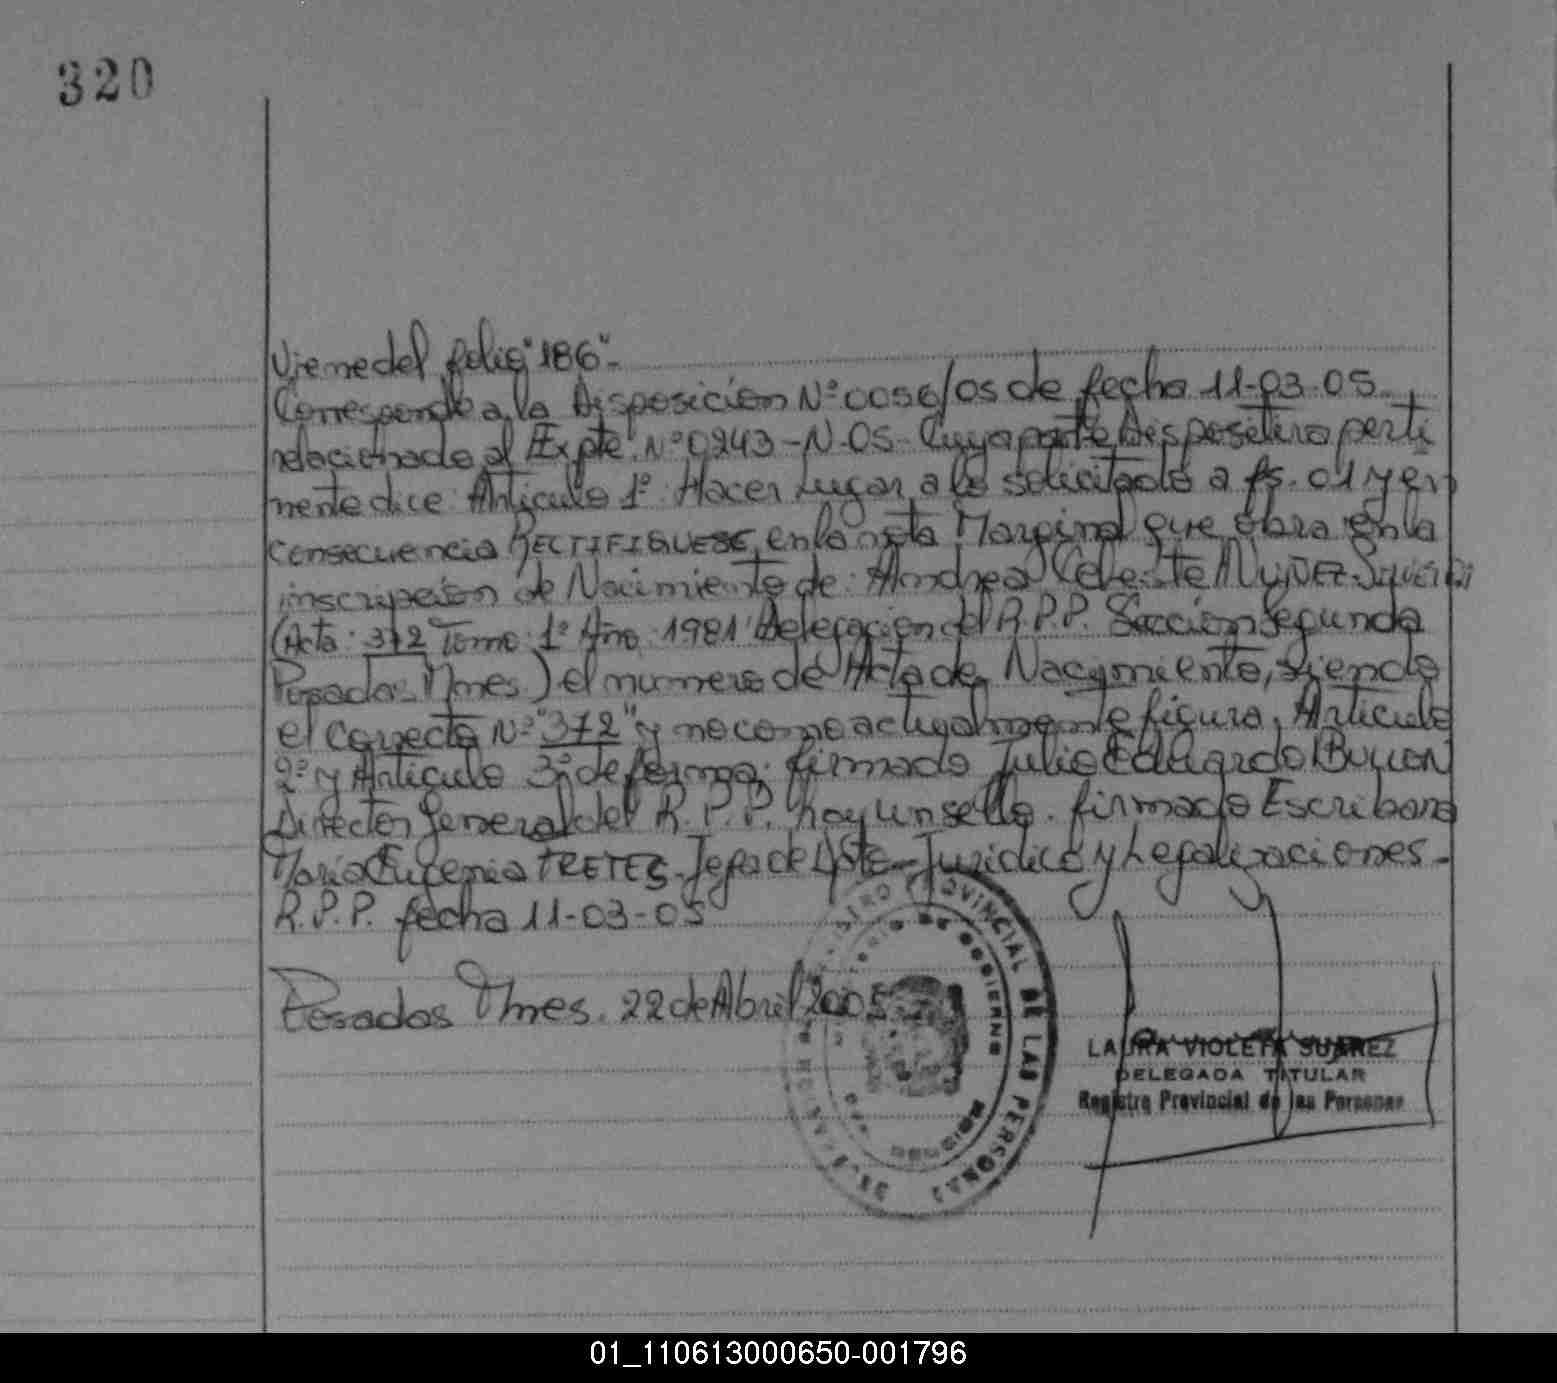 320
Viene del folio "186"-
Corresponde a la Disposición Nº 0056/05 de fecha 11-03-05
relacionado al Expte. Nº 0243-N-05- Cuya parte Dispositiva perti
nente dice: Articulo 1º: Hacer Lugar a lo solicitado a fs. 01 y en
consecuencia RECTIFIQUESE, en la nota Marginal que obra en la
inscripción de Nacimiento de: Andrea Celeste NUÑEZ
(Acta: 372 Tomo: 1º Año: 1981 Delegación del R.P.P. Sección Segunda
Posadas Mnes.) el numero de Acta de Nacimiento, siendo
el correcto Nº "372" y no como actualmente figura, Articulo
2º y Articulo 3º de forma: firmado Julio Eduardo
Director General del R.P.P. hay un sello. firmado Escribana
Maria Eugenia Jefa de Dpto- Juridico y Legalizaciones-
R.P.P. fecha 11-03-05
Posadas Mnes. 22 de Abril 2005
PROVINCIAL DE LAS PERSONAS
DE GOBIERNO
LAURA VIOLETA SUAREZ
DELEGADA TITULAR
Registro Provincial de las Personas
01_110613000650-001796